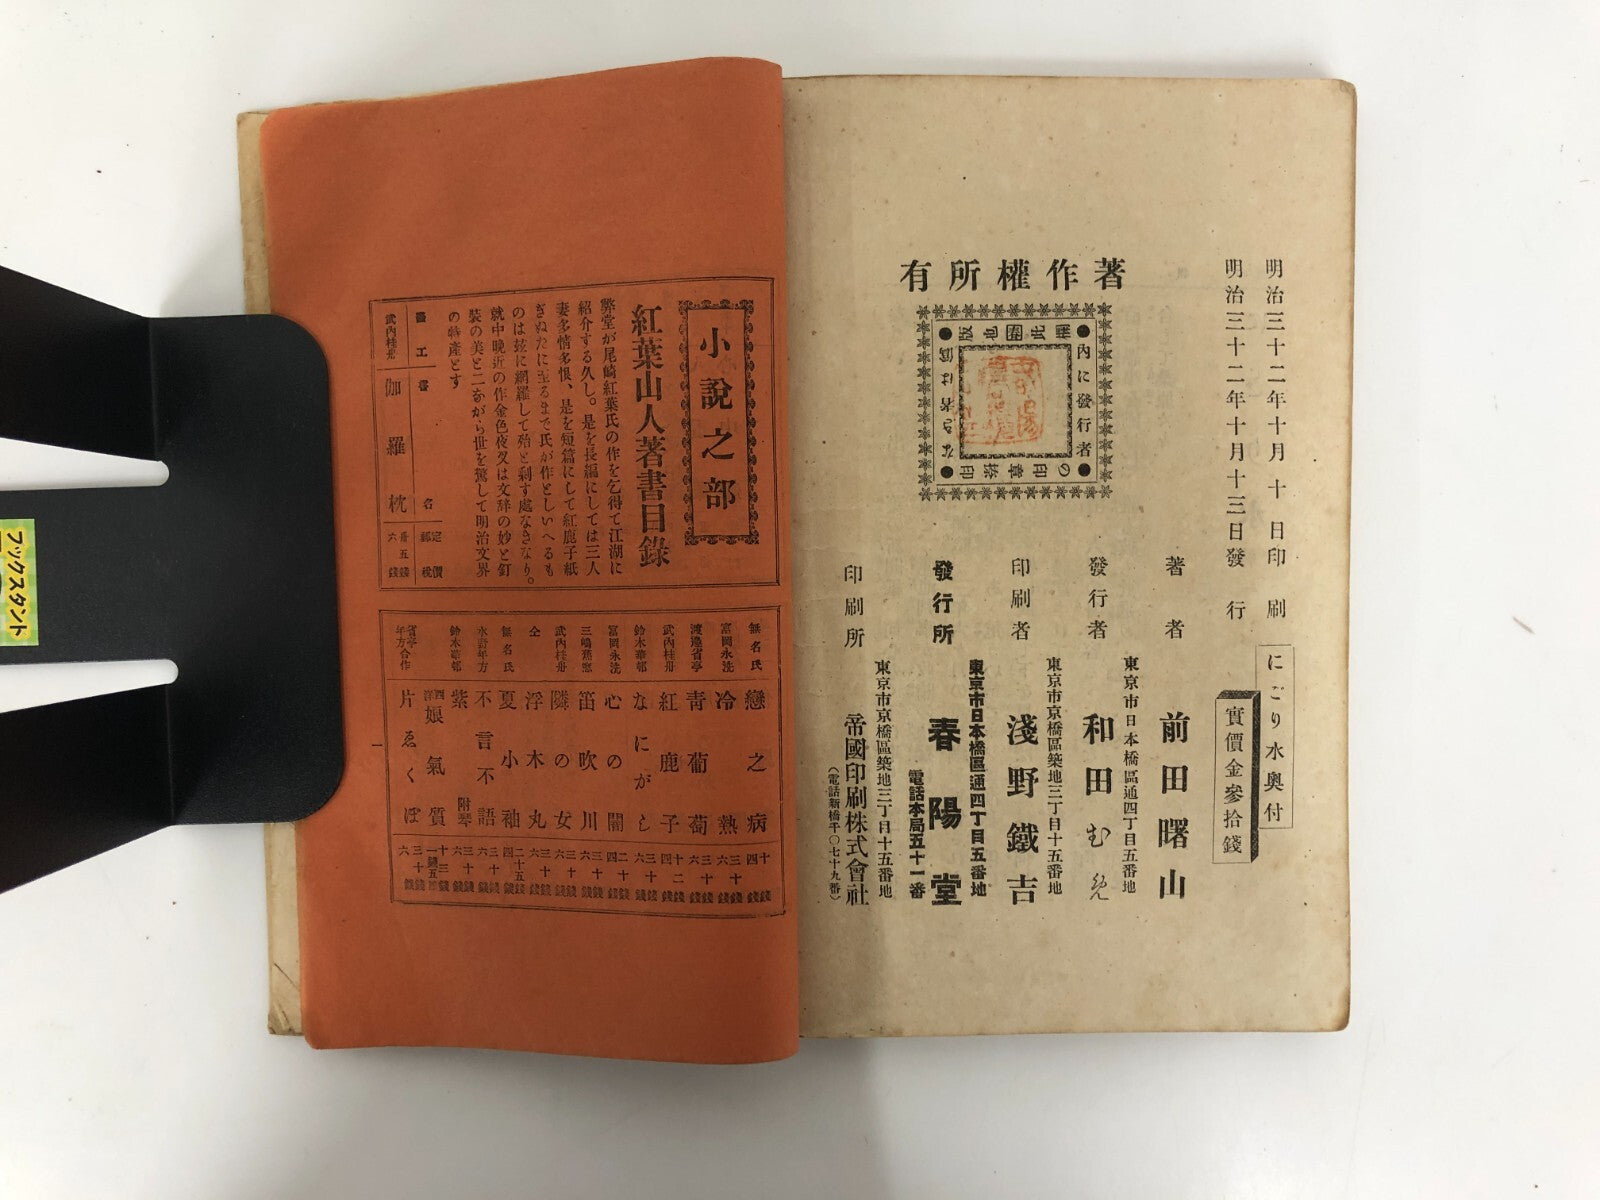 明治三十二年十月十日印刷
明治三十二年十月十三日發行
にごり水奥付
實價金參拾錢
著作權所有
●內に發行者●
の印章捺印
なら者は僞
著者
前田曙山
東京市日本橋區通四丁目五番地
發行者
和田むめ
東京市京橋區築地三丁目十五番地
印刷者
淺野鐵吉
東京市日本橋區通四丁目五番地
發行所
春陽堂
電話本局五十一番
東京市京橋區築地三丁目十五番地
印刷所
帝國印刷株式會社
（電話新橋千〇七十九番）
小說之部
紅葉山人著書目錄
弊堂が尾崎紅葉氏の作を乞得て江湖に
紹介する久し。是を長編にしては三人
妻多情多恨、是を短篇にして紅鹿子紙
きぬたに至るまで氏が作としいへるも
のは玆に網羅して殆と剩す處なきなり。
就中晩近の作金色夜叉は文辞の妙と釘
裝の美と二ながら世を驚して明治文界
の特產とす
畫工 書名 定價 郵稅
武內桂舟 伽羅枕 卅五錢 六錢
無名氏 戀之病 十錢 四錢
富岡永洗 冷熱 三十錢 六錢
渡邊省亭 靑葡萄 三十錢 六錢
武內桂舟 紅鹿子 十二錢 四錢
鈴木華邨 なにがし 三十錢 六錢
富岡永洗 心の闇 二十錢 四錢
三嶋蕉窓 笛吹川 三十錢 六錢
武內桂舟 隣の女 三十錢 六錢
仝 浮木丸 三十錢 六錢
無名氏 夏小袖 二十五錢 四錢
水野年方 不言不語 三十錢 六錢
鈴木華邨 紫 附琴 三十錢 六錢
四洋娘氣質
省亭年方合作 片ゑくぼ 三十錢 六錢
一
ブックスタンド